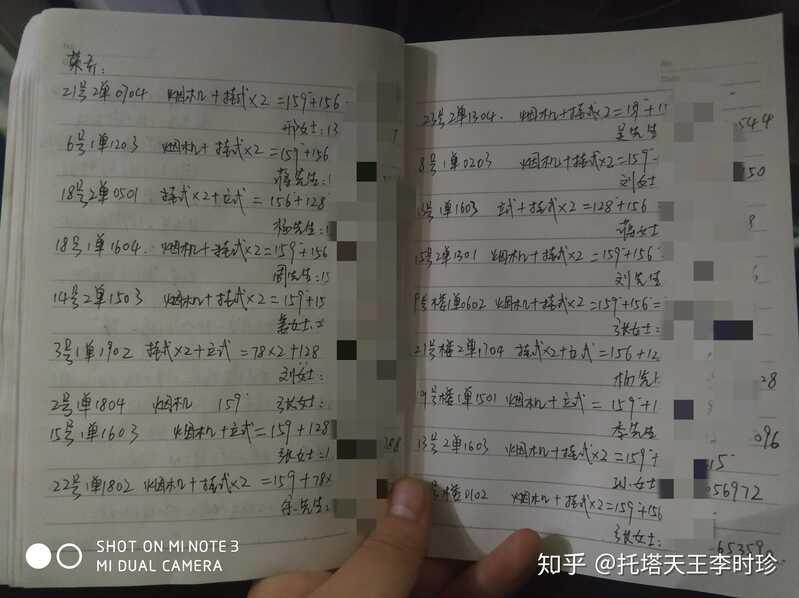 21号2单0704 烟机+挂式×2=159+156
邢女士:13
6号1单1203 烟机+挂式×2=159+156
蒋先生:1
18号2单0501 挂式×2+立式=156+128
杨先生:1
18号1单1604. 烟机+挂式×2=159+156
周先生:15
14号2单1503 烟机+挂式×2=159+15
姜女士:
3号1单1902 挂式×2+立式=78×2+128
刘女士:
2号1单1804 烟机 159 张女士:
15号1单1603 烟机+立式=159+128
张女士:1
22号1单1802 烟机+挂式×2=159+78×
先生:
23号2单1304. 烟机+挂式×2=159+1
吴先生 544
8号1单0203 烟机+挂式×2=159
刘女士 50
号1单1603 立式+挂式×2=128+156
蒋女士
15号2单1301 烟机+挂式×2=159+156
刘先生
号楼1单0602 烟机+挂式×2=159+156=
张女士:
21号楼2单1704 挂式×2+立式=156+12
杨先 28
19号楼1单1501 烟机+立式=159+1
李先生 096
13号2单1603 烟机+挂式×2=159+
孙女士 15
号楼0102 烟机+挂式×2=159+156
056972
张女士: 65359
SHOT ON MI NOTE 3
MI DUAL CAMERA
知乎 @托塔天王李时珍